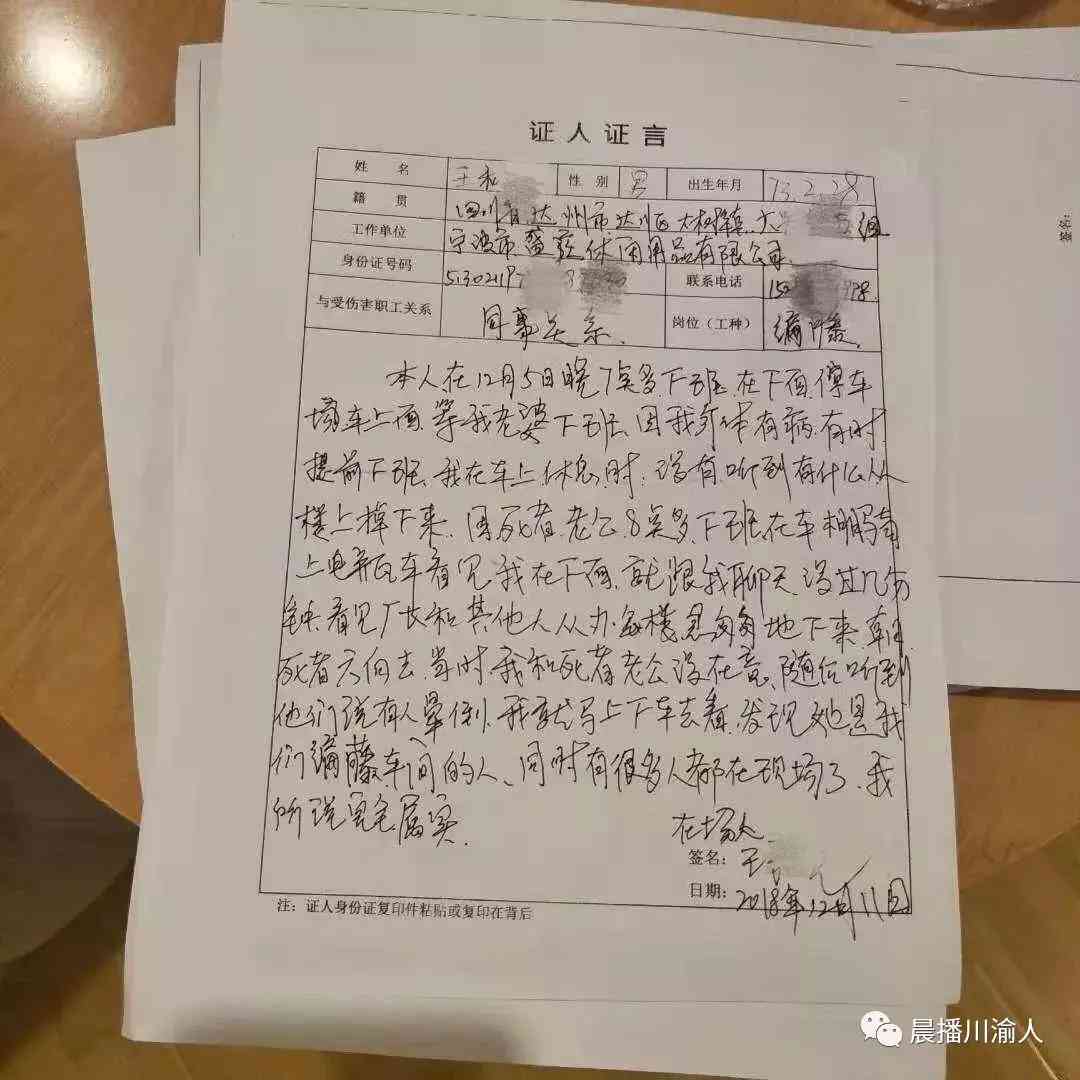 证人证言
姓 名 王 性 别 男 出生年月 73.2.28
籍 贯 四川省达州市达川区大树镇 组
工作单位 宁波市 休闲用品有限公司
身份证号码 5130211 联系电话 15 98
与受伤害职工关系 同事关系. 岗位（工种） 编藤.
本人在12月5日晚7点多.下班.在下面停车
场车上面.等我老婆下班.因我身体有病.有时
提前下班.我在车上休息时.没有听到有什么从
楼上掉下来.因死者老公8点多.下班.在车棚骑
上电瓶车看见我在下面.就跟我聊天.没过几分
钟.看见厂长和其他人从办公楼急匆匆地下来.
死者方向去.当时我和死者老公没在意.随后听到
他们说有人晕倒.我就马上下车去看.发现她是我
们编藤车间的人、同时有很多人都在现场了.我
所说完全属实.
在场人
签名：王
日期：2018年12月11日
注：证人身份证复印件粘贴或复印在背后
签名:
晨播川渝人